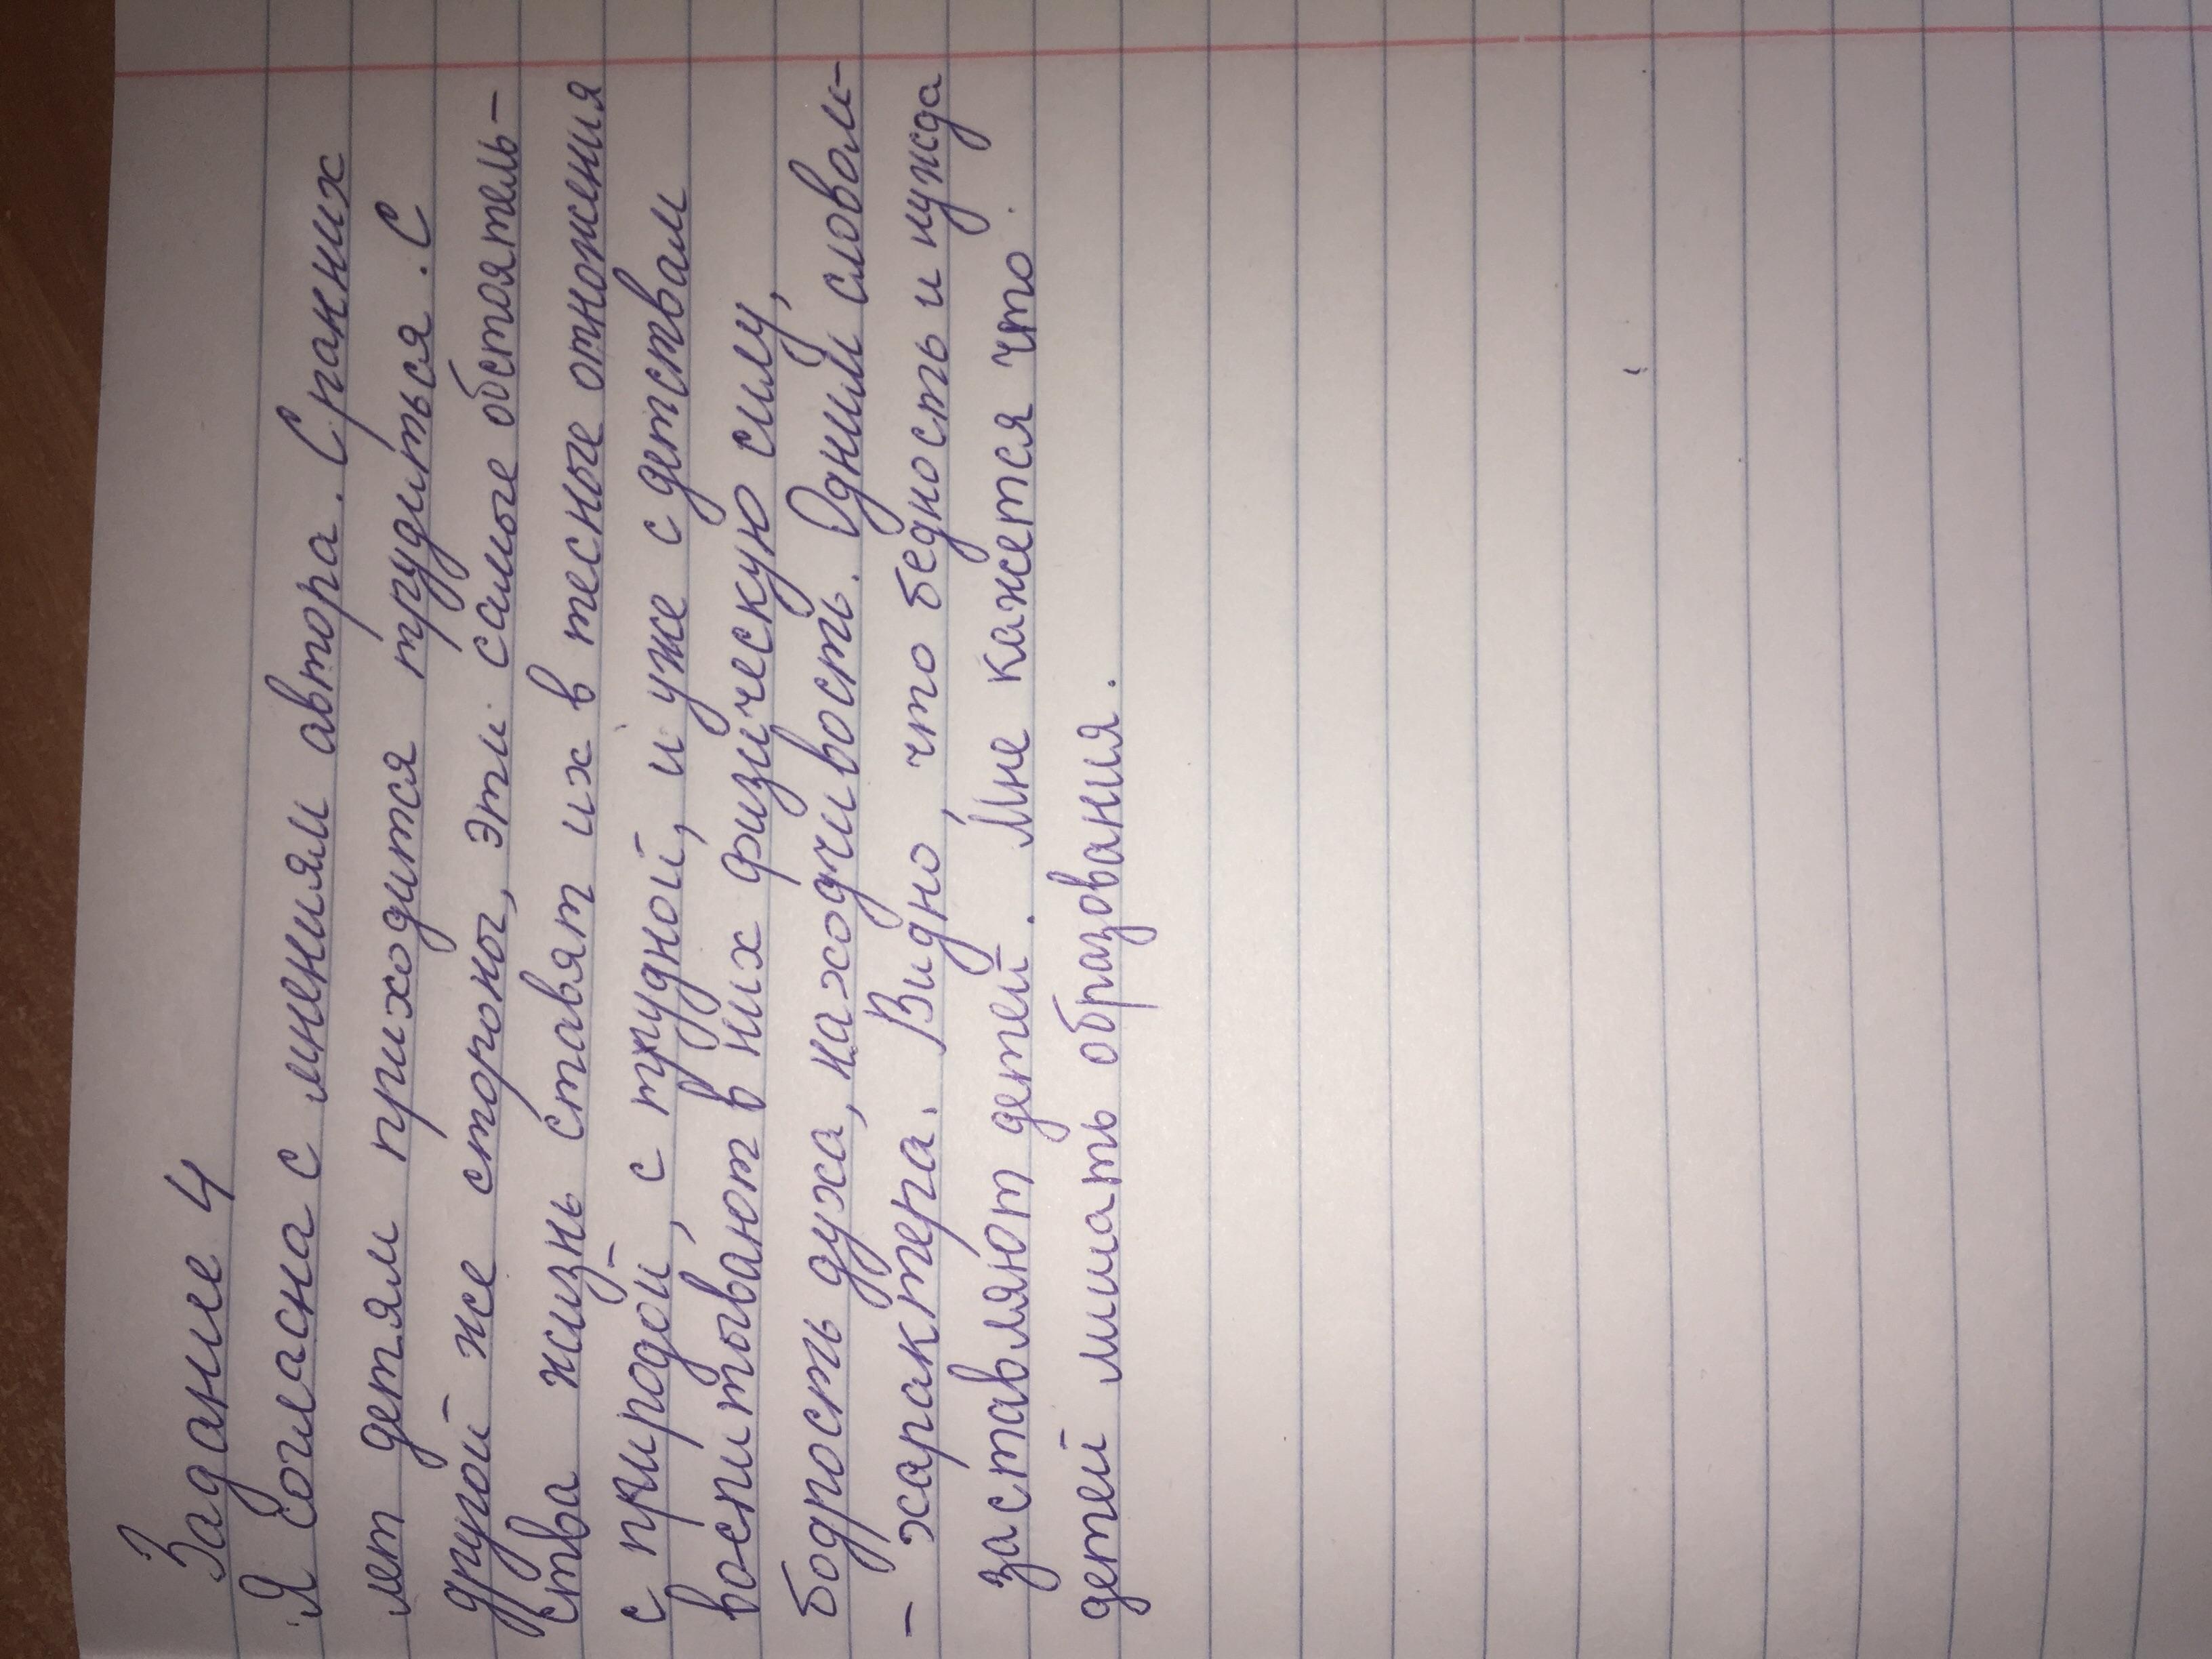 Задание 4
Я согласна с мнениям автора. С ранних
лет детям приходится трудиться. С
другой же стороны, эти самые обстоятель-
ства жизнь ставят их в тесные отножения
с природой, с трудной, и уже с детствам
воспитывают в них физическую силу,
бодрость духа, находчивость. Одним словом-
- характера. Видно, что бедность и нужда
заставляют детей. Мне кажется что
детей лишать образования.